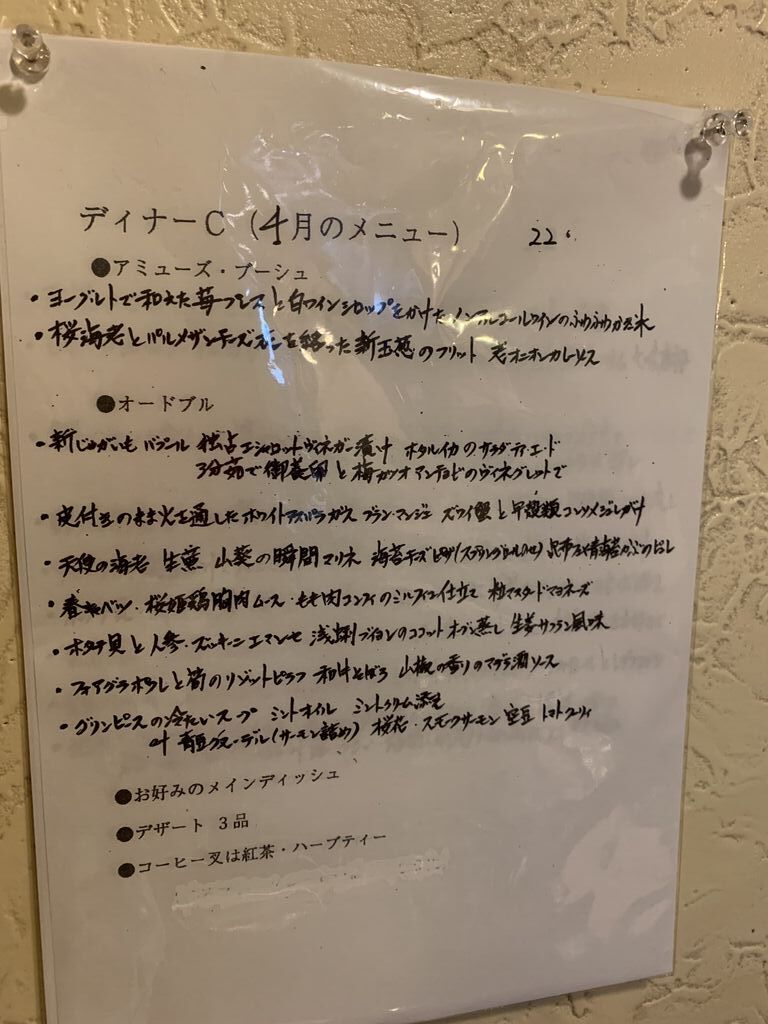 ディナーC (4月のメニュー) 22.
●アミューズ・ブーシュ
・ヨーグルトで和えた苺フレスと白ワインシロップをかけたノンアルコールワインのふわふわかき氷
・桜海老とパルメザンチーズを絡った新玉葱のフリット オニオンカレーソース
●オードブル
・新じゃがいも エシャロットヴィネガー漬け ホタルイカのサラダティエード
3分茹で御養卵と梅カツオアンチョビのヴィネグレットで
・皮付きのまま火を通したホワイトアスパラガス ブラン・マンジェ ズワイ蟹と甲殻類コンソメジュレがけ
・天使の海老 生雲丹 山葵の瞬間マリネ 海苔チーズ
・春キャベツ・桜姫鶏胸肉ムース・もも肉コンフィのミルフィユ仕立て 粒マスタードマヨネーズ
・ホタテ貝と人参・ズッキーニエマンセ 浅蜊ブイヨンのココットオーブン蒸し 生姜サフラン風味
・フォアグラポワレと筍のリゾットピラフ 和牛そぼろ 山椒の香りのマデラ酒ソース
・グリンピースの冷たいスープ ミントオイル ミントクリーム添え
(サーモン詰め) 桜花・スモークサーモン 空豆 トマト
●お好みのメインディッシュ
●デザート 3品
●コーヒー又は紅茶・ハーブティー